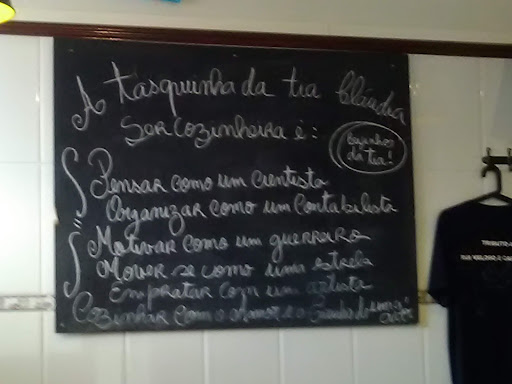 A Tasquinha da tia Cláudia
Ser Cozinheira é:
Beijinhos
da tia!
Pensar como um cientista
Organizar como um Contabilista
Motivar como um guerreiro
Mover se como uma estrela
Empratar com um artista
Cozinhar Com o Amor e o Carinho de uma
TRIBUTO A
RUI VELOSO E